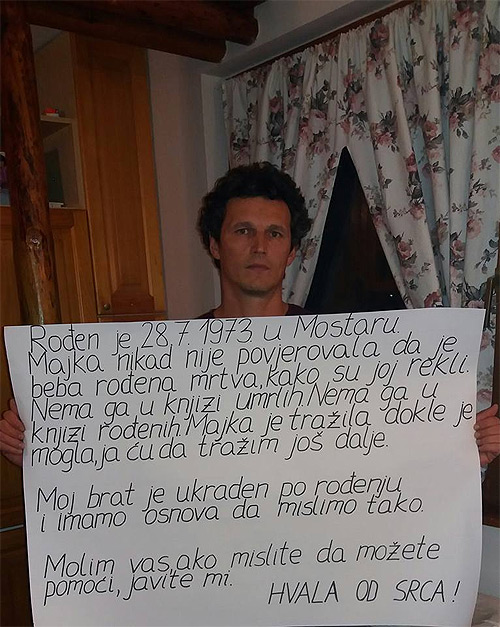 Rođen je 28.7. 1973. u Mostaru.
Majka nikad nije povjerovala da je
beba rođena mrtva, kako su joj rekli.
Nema ga u knjizi umrlih. Nema ga u
knjizi rođenih. Majka je tražila dokle je
mogla, ja ću da tražim još dalje.
Moj brat je ukraden po rođenju
i imamo osnova da mislimo tako.
Molim vas, ako mislite da možete
pomoći, javite mi. HVALA OD SRCA!